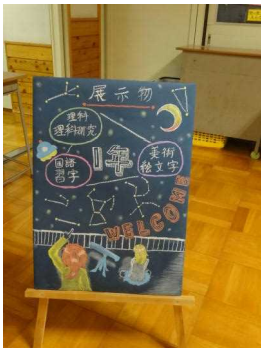 展示物
理科
理科探究
1年
国語
習字
美術
絵文字
WELCOME